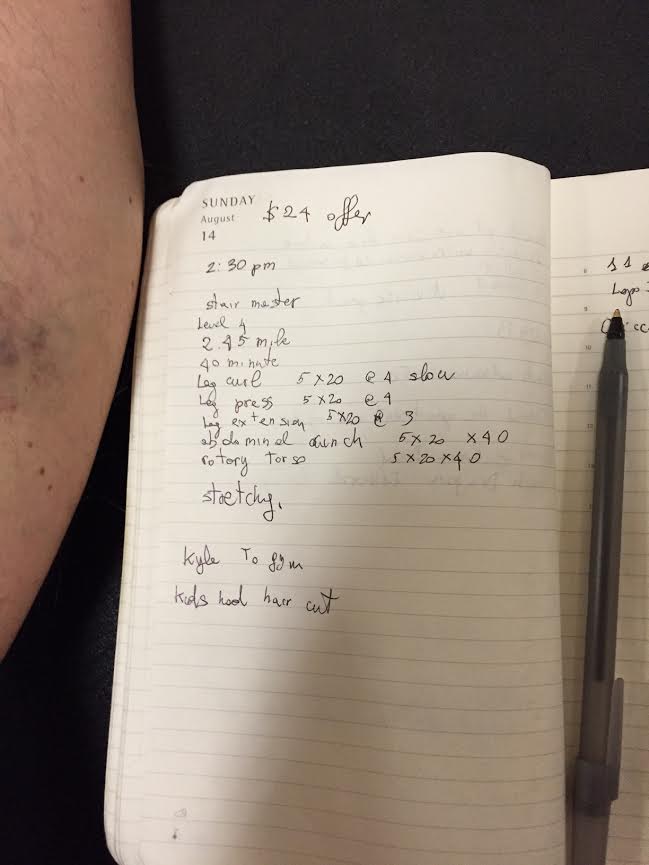 SUNDAY
August
14
$24 offer
2:30 pm
stair master
Level 4
2.45 mile
40 minute
Leg curl 5x20 @ 4 slow
Leg press 5x20 @ 4
Leg extension 5x20 @ 3
abdominal crunch 5x20 x40
rotory torso 5x20x40
stretchy.
Kyle To gym
Kids had hair cut
11
Legs
9
10